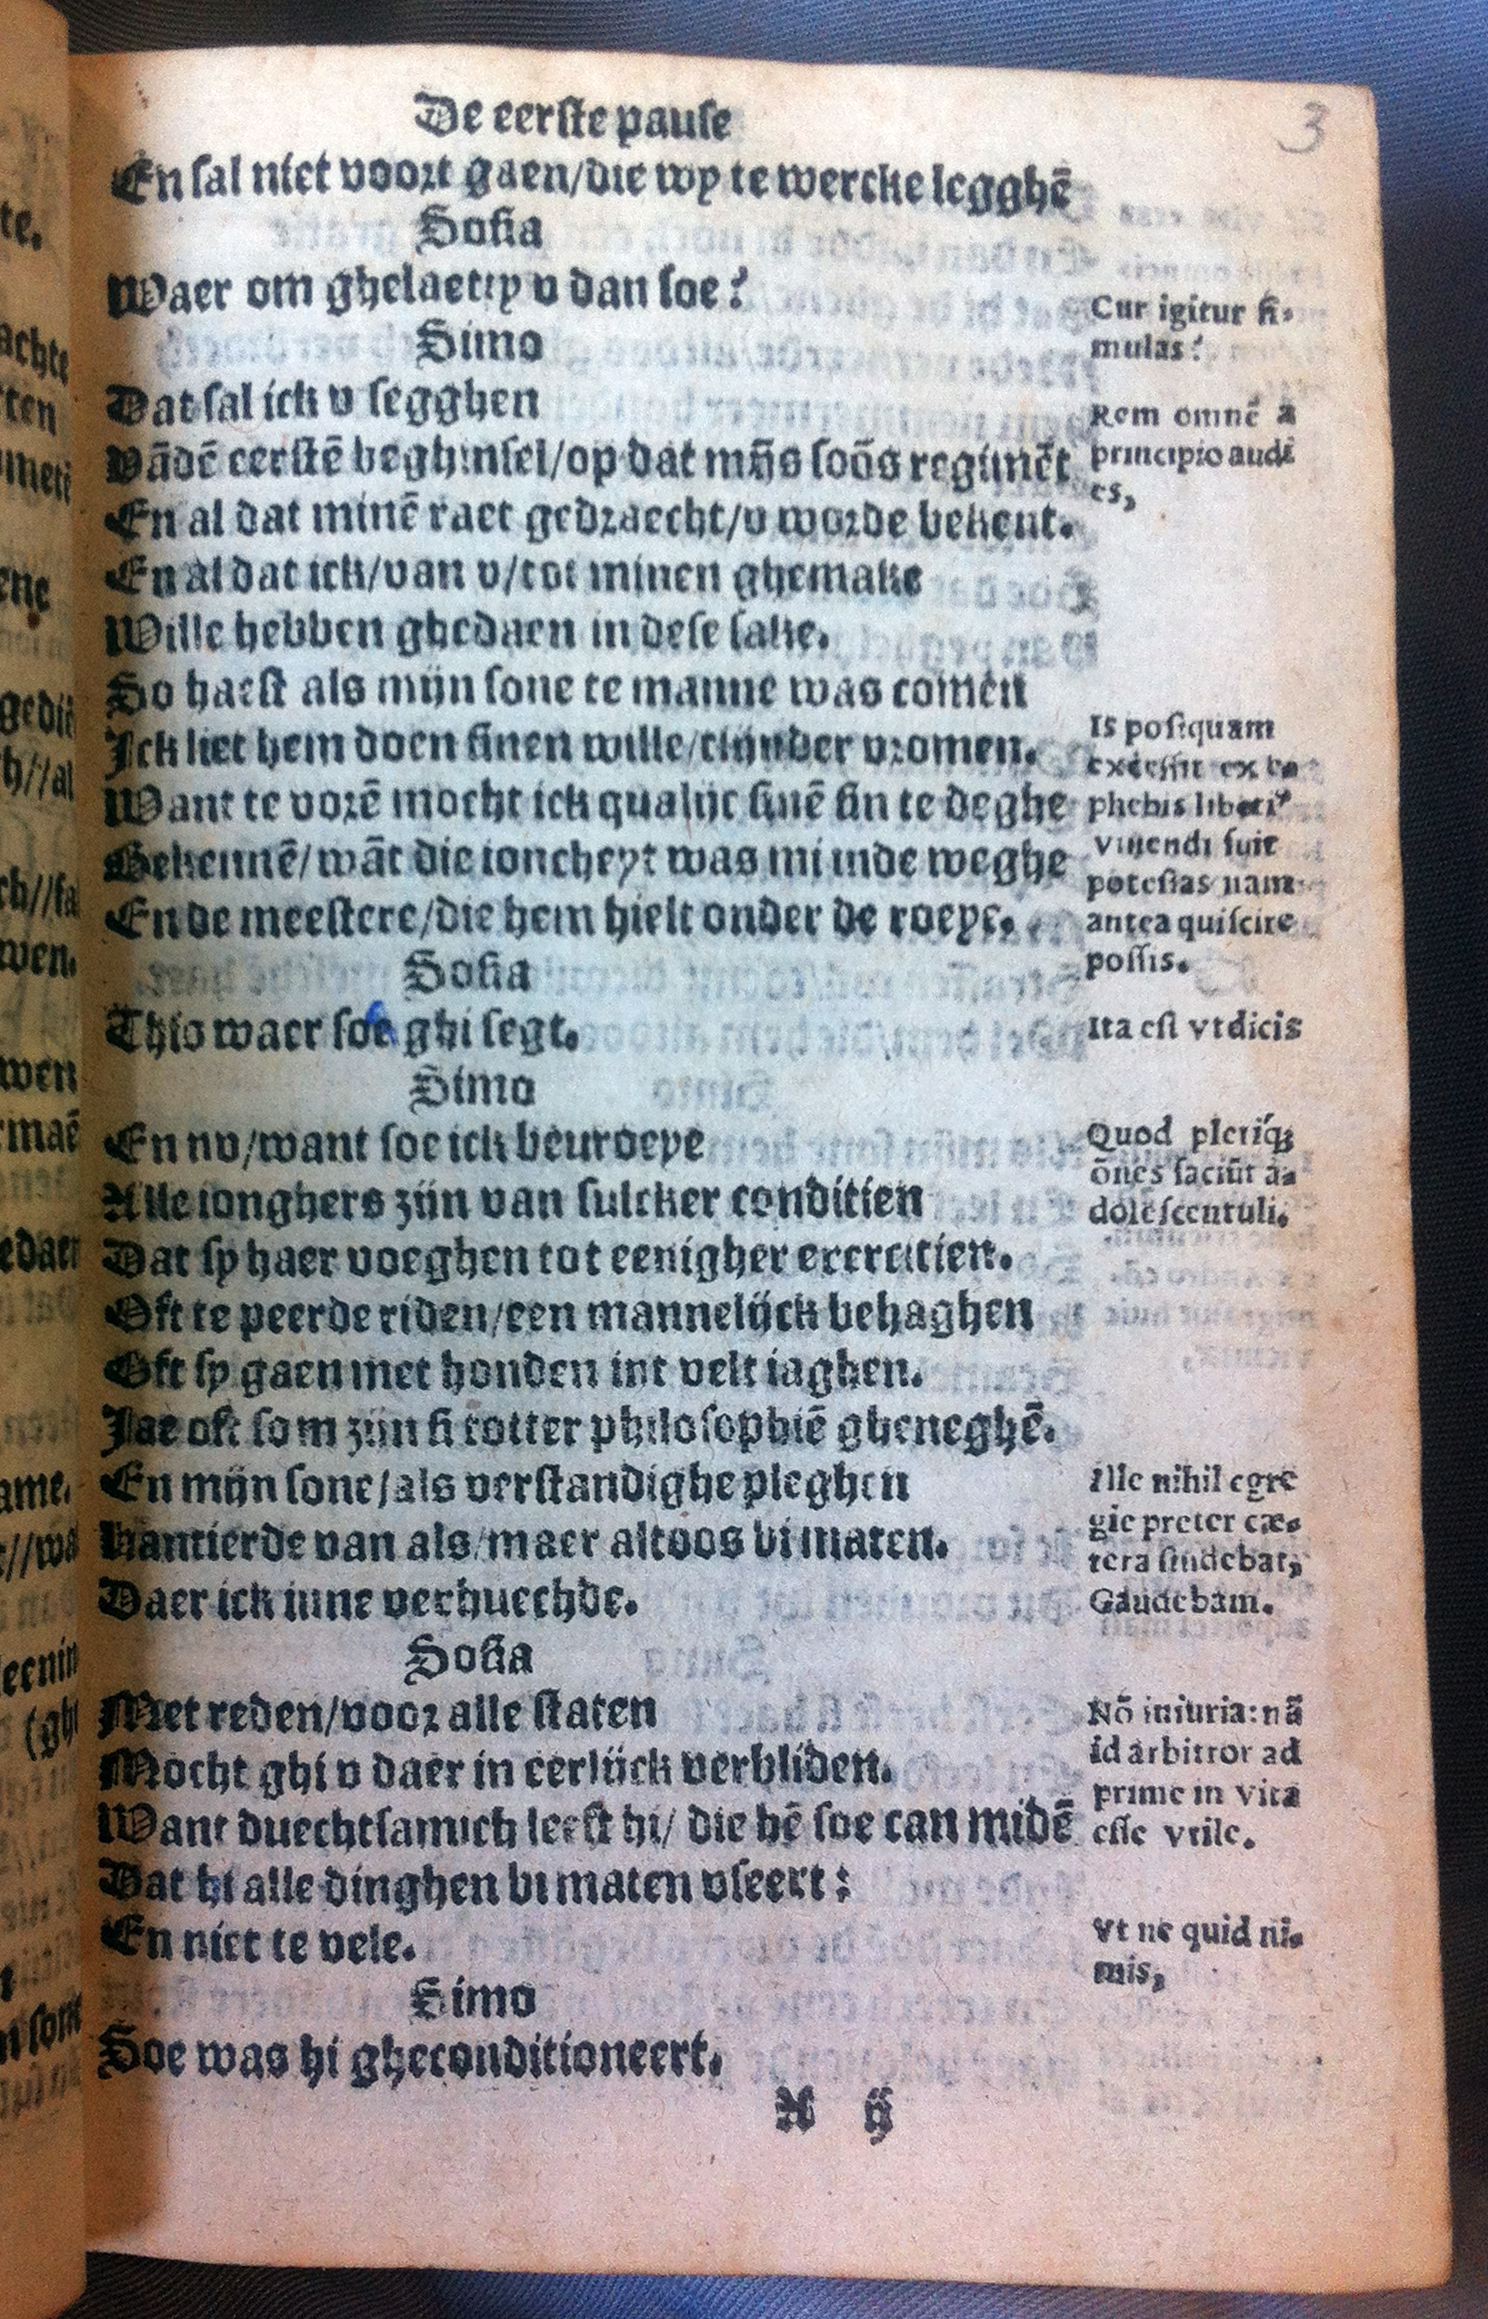 De eerste pause
3
En sal niet voort gaen/die wy te wercke legghē
Sosia
Waer om ghelaetty v dan soe?
Cur igitur si-
mulas?
Simo
Dat sal ick v segghen
Rem omnē a
principio audi
es,
Vādē eerstē beghinsel/op dat mijs soōs regimēt
En al dat minē raet gedraecht/v worde bekent.
En al dat ick/van v/tot minen ghemake
Wille hebben ghedaen in dese sake.
So haest als mijn sone te manne was comen
Ick liet hem doen sinen wille/tsijnder vromen.
Want te vorē mocht ick qualijc sinē sin te deghe
Bekennē/wāt die ioncheyt was mi inde weghe
En de meestere/die hem hielt onder de roeye.
Is postquam
excessit ex e-
phebis liberi9
viuendi fuit
potestas nam
antea qui scire
possis.
Sosia
This waer soe ghi segt.
Ita est vt dicis
Simo
En nv/want soe ick beuroeye
Alle ionghers zijn van sulcker conditien
Dat sy haer voeghen tot eenigher exercitien.
Oft te peerde riden/een mannelijck behaghen
Oft sy gaen met honden int velt iaghen.
Jae oft som zijn si totter philosophiē gheneghē.
Quod pleriq3
ōnes faciūt a-
dolescentuli.
En mijn sone/als verstandighe pleghen
Hantierde van als/maer altoos bi maten.
Daer ick inne verhuechde.
Ille nihil egre
gie preter cæ-
tera studebat,
Gaudebam.
Sosia
Met reden/voor alle staten
Mocht ghi v daer in eerlijck verbliden.
Want duechtsamich leeft hi/ die hē soe can midē
Dat hi alle dinghen bi maten vseert:
En niet te vele.
Nō iniuria: nā
id arbitror ad
prime in vita
esse vtile.
Vt ne quid ni-
mis,
Simo
Soe was hi gheconditioneert.
A ij